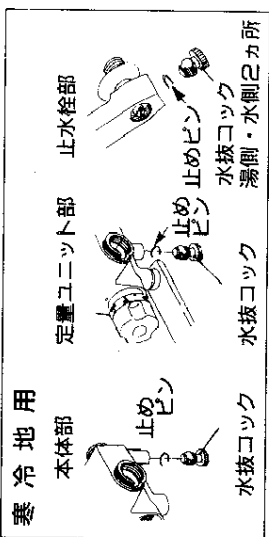 寒冷地用
本体部
止め
ピン
水抜コック
定量ユニット部
止め
ピン
水抜コック
止水栓部
止めピン
水抜コック
湯側・水側2ヵ所